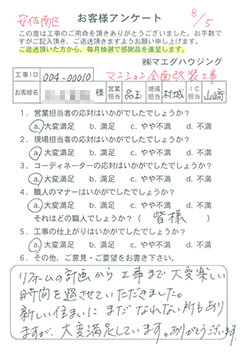 安佐南区
お客様アンケート
8/5
この度は工事のご用命を頂きありがとうございました。お手数で
すがご記入頂き、ご返送頂きますようお願い申し上げます。
ご返送頂いた方から、毎月抽選で感謝品を進呈します。
㈱マエダハウジング
工事ID 004-00010 マンション全面改装工事
お客様名 様 営業担当 品上 現場担当 村城 IC担当 山崎
1. 営業担当者の応対はいかがでしたでしょうか?
a.大変満足 b.満足 c.やや不満 d.不満
2. 現場担当者の応対はいかがでしたでしょうか?
a.大変満足 b.満足 c.やや不満 d.不満
3. コーディネーターの応対はいかがでしたでしょうか?
a.大変満足 b.満足 c.やや不満 d.不満
4. 職人のマナーはいかがでしたでしょうか?
a.大変満足 b.満足 c.やや不満 d.不満
それはどの職人でしょうか?( 皆様 )
5. 工事の仕上がりはいかがでしたでしょうか?
a.大変満足 b.満足 c.やや不満 d.不満
6. その他、ご意見・ご要望をお書き下さい。
リフォームの計画から工事まで大変楽しい
時間を過させていただきました。
新しい住まいにまだなれない所もあり
ますが、大変満足しています。ありがとうございます